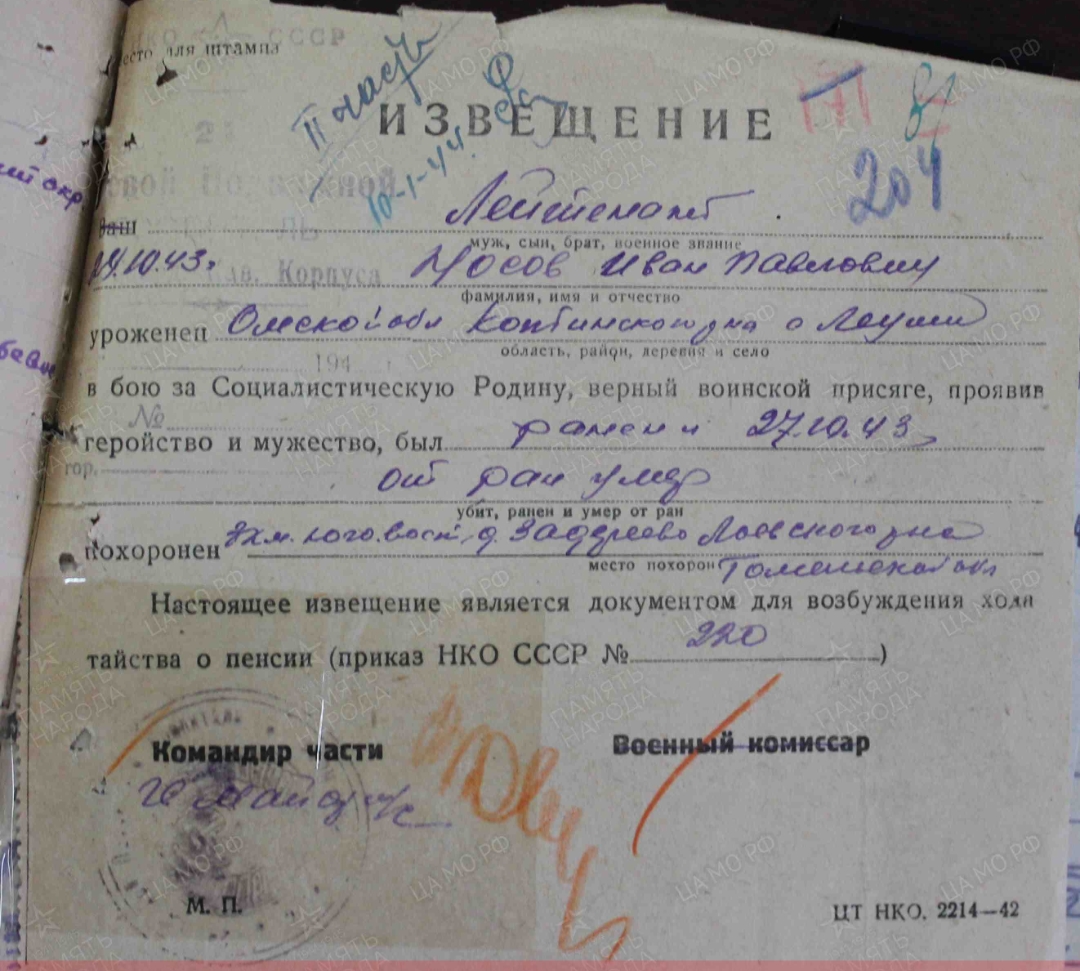 НКО СССР
место для штампа
II часть
10-1-44.
ИЗВЕЩЕНИЕ
204
Ваш Лейтенант.
муж, сын, брат, военное звание
Носов Иван Павлович
фамилия, имя и отчество
уроженец Омской обл Континского рна с Леуши
область, район, деревня и село
в бою за Социалистическую Родину, верный воинской присяге, проявив
геройство и мужество, был ранен и 27.10.43
от ран умер
убит, ранен и умер от ран
похоронен 2км. юго.вост. д. Задереево Лоевского рна
место похорон Гомельской обл
Настоящее извещение является документом для возбуждения хода
тайства о пенсии (приказ НКО СССР № 220)
Командир части
Военный комиссар
М. П.
ЦТ НКО. 2214—42